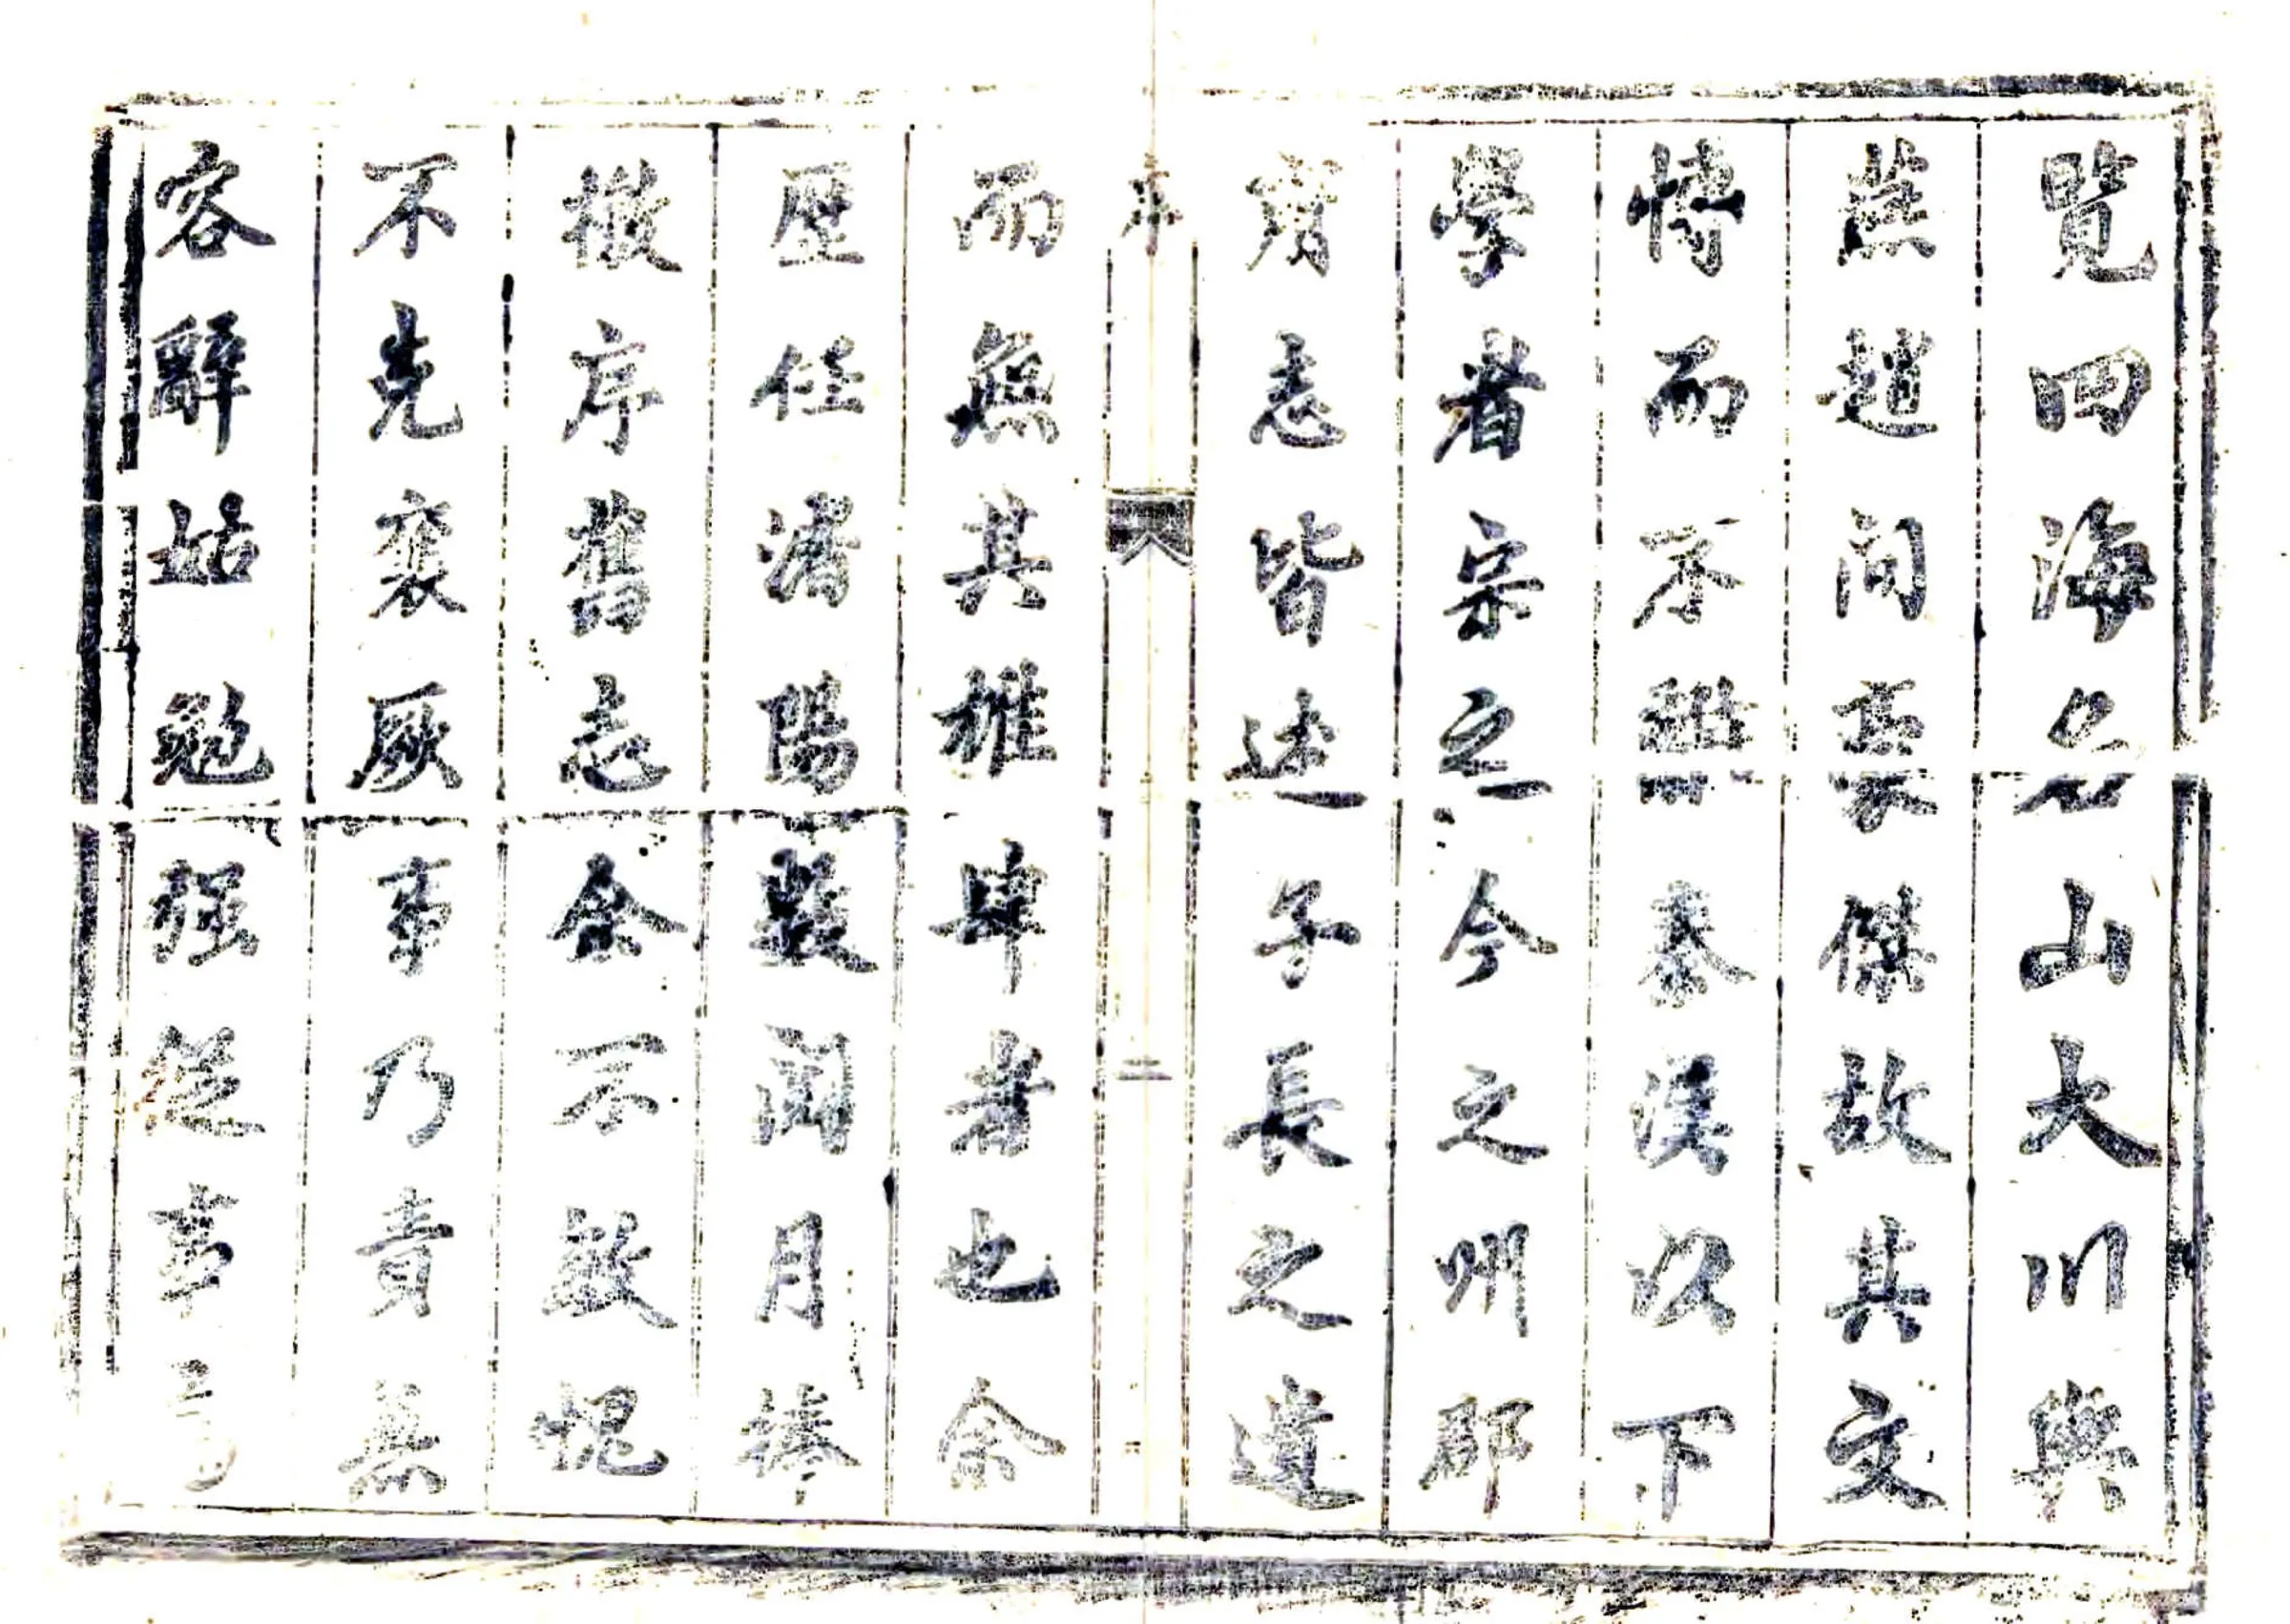 覽四海名山大川與
燕趙間豪傑故其文
愽而不雜秦漢以下
學者宗之今之州郡
省志皆述子長之遺
序 二
而無其雄肆者也余
歷任渚陽數閱月捧
檄序舊志余不敢愧
不克襄厥事乃責無
容辭姑勉强從事